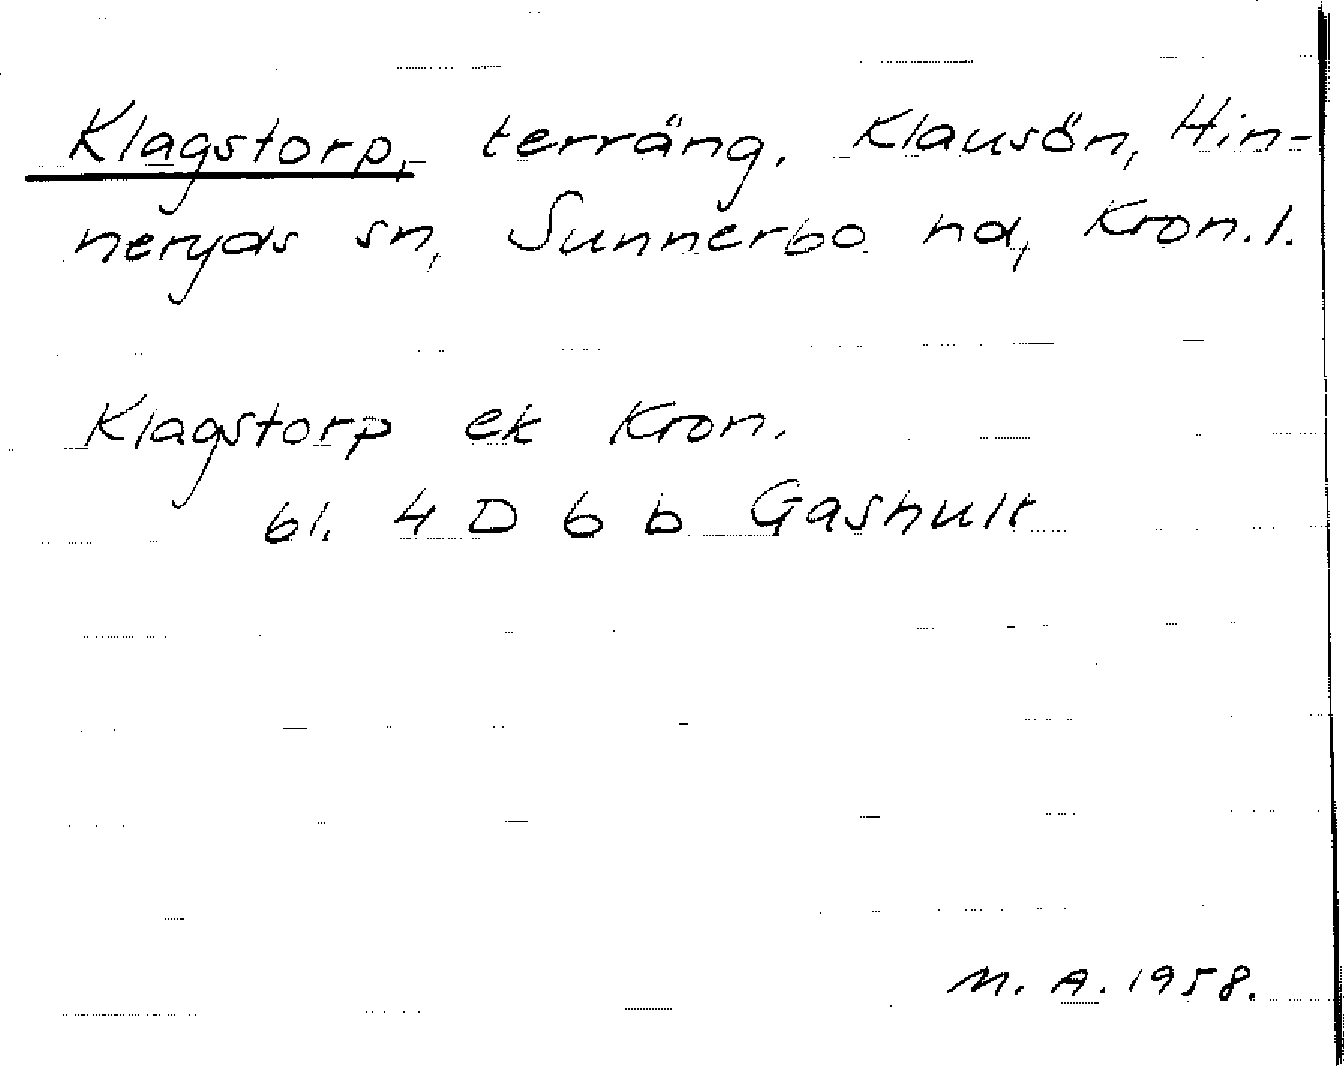 Klagstorp, terräng. Klausön, Hin-
neryds sn, Sunnerbo hd, Kron. l.
Klagstorp ek Kron.
bl. 4 D 6 b Gashult
M. A. 1958.